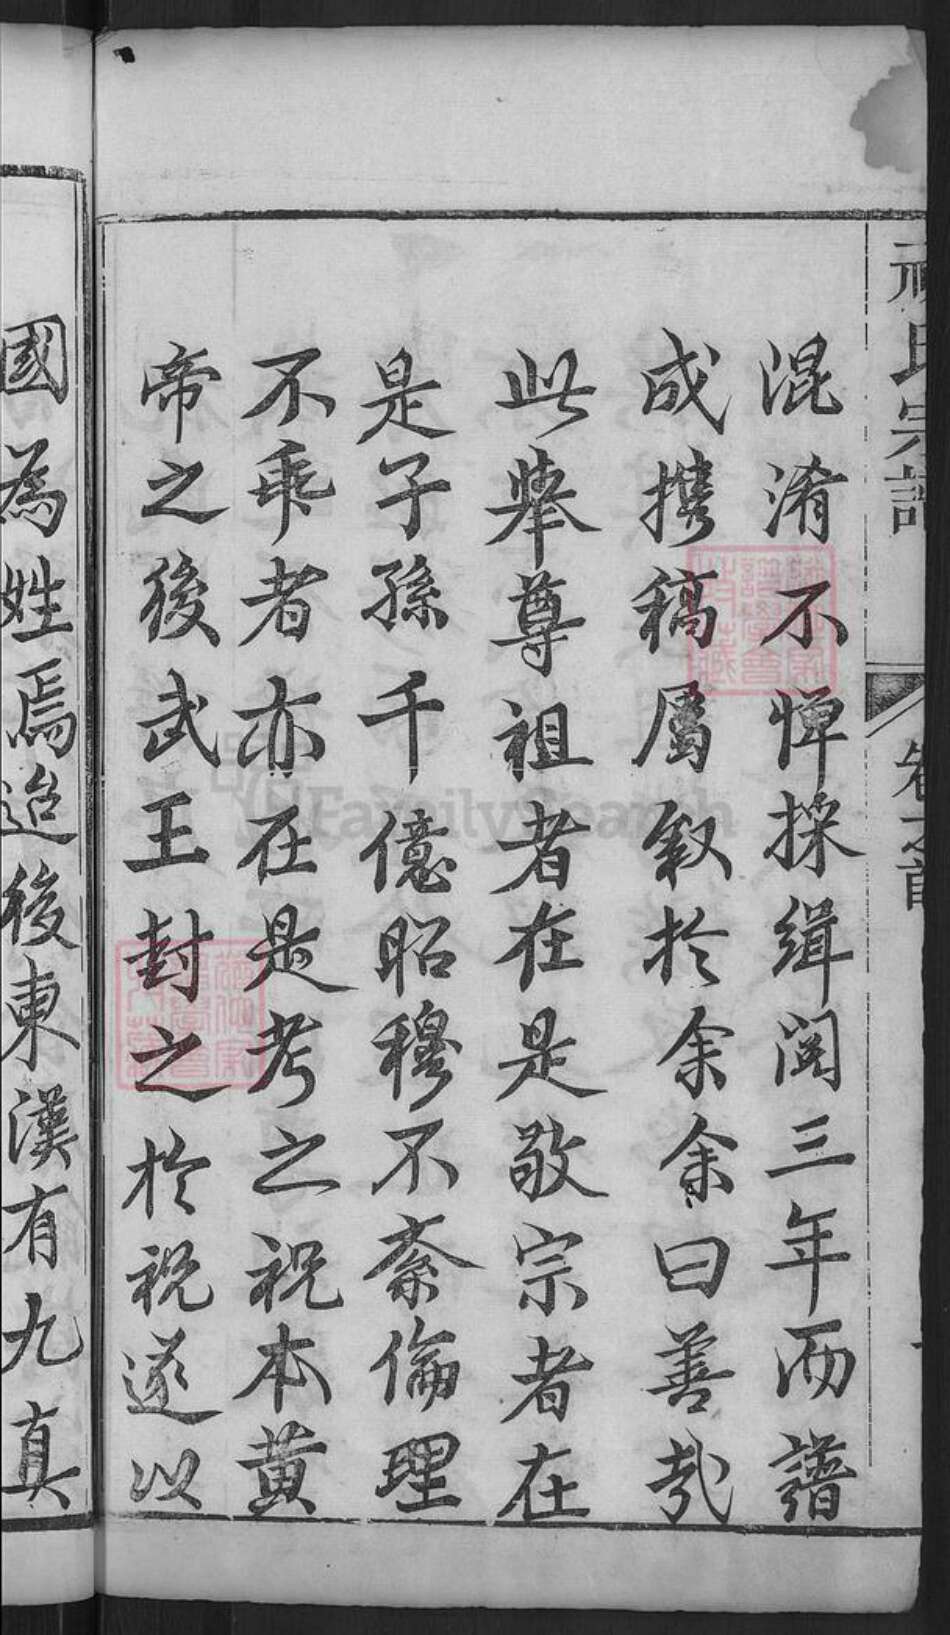 祝氏宗譜
卷之首
混淆不憚採緝閱三年而譜
成攜稿屬叙於余余曰善哉
此舉尊祖者在是敬宗者在
是子孫千億昭穆不紊倫理
不乖者亦在是考之祝本黃
帝之後武王封之於祝遂以
國為姓焉迨後東漢有九真
FamilySearch